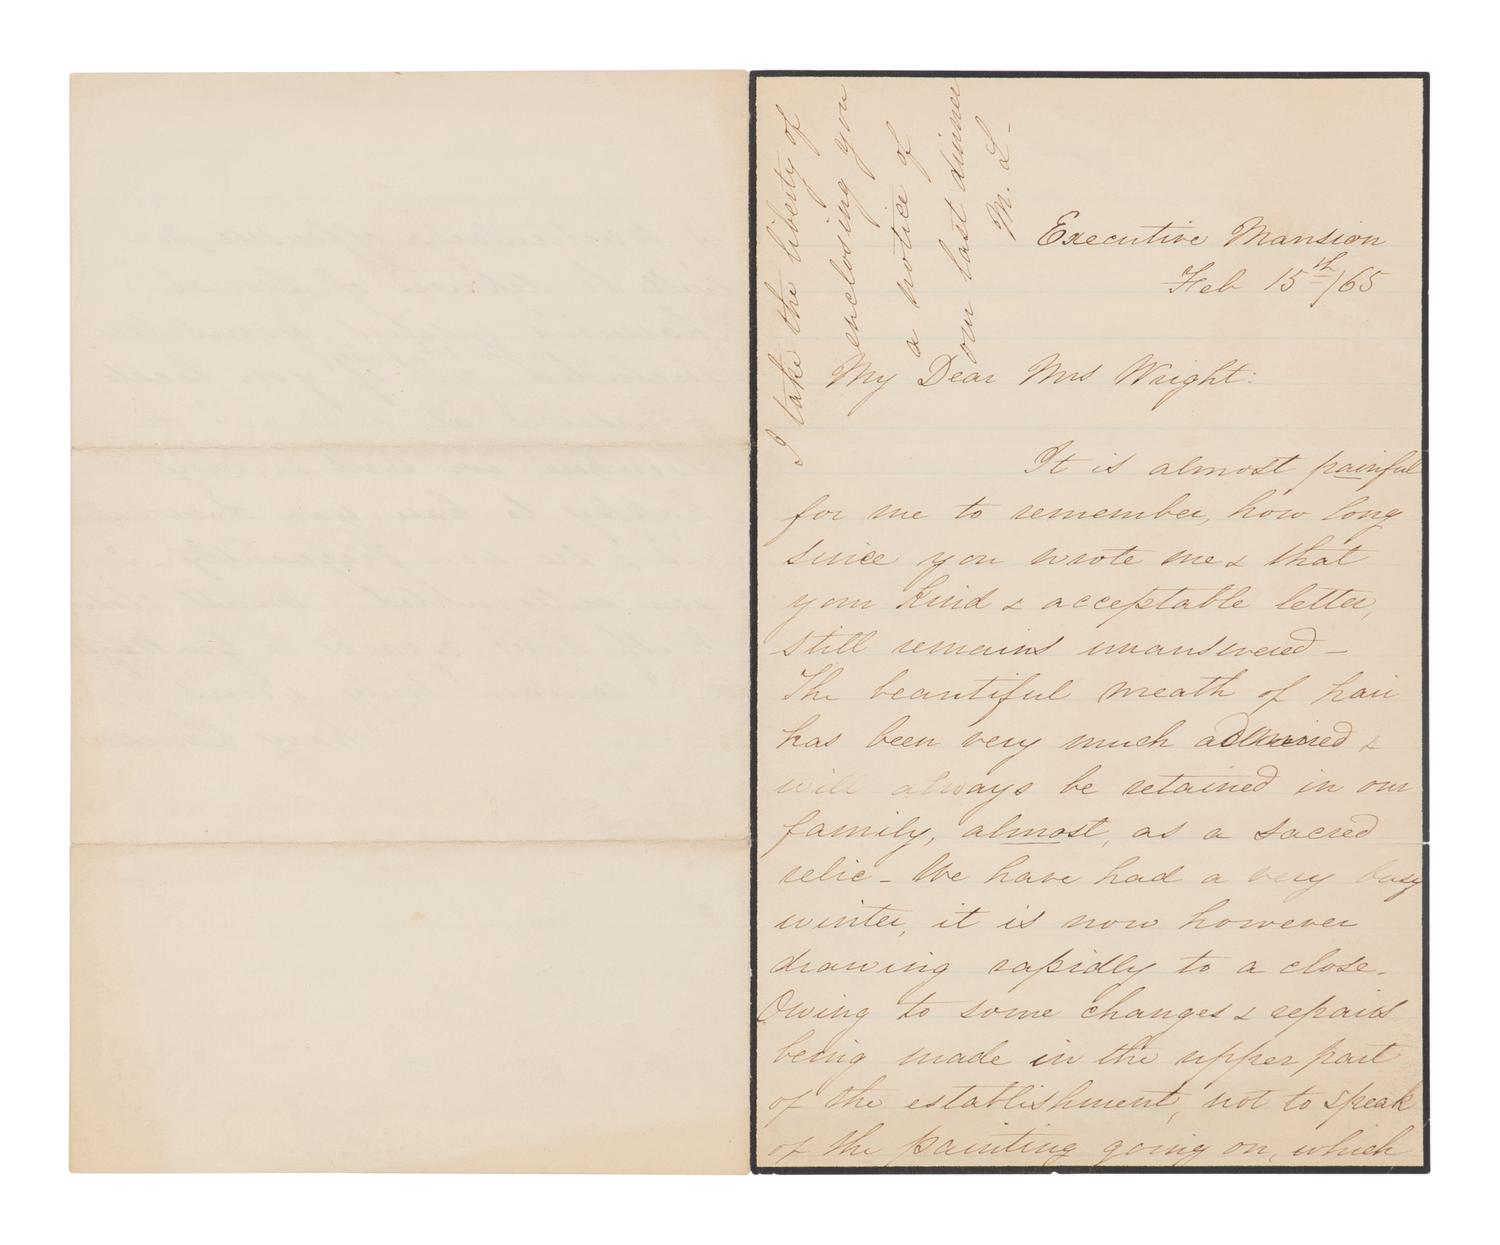 I take the liberty of
enclosing you
a notice of
our last dinner
M. L -
Executive Mansion
Feb 15th/65
My Dear Mrs Wright:
It is almost painful
for me to remember, how long
since you wrote me & that
your kind & acceptable letter,
still remains unanswered -
The beautiful wreath of hair
has been very much admired &
will always be retained in our
family, almost, as a sacred
relic - We have had a very busy
winter, it is now however
drawing rapidly to a close -
Owing to some changes & repairs
being made in the upper part
of the establishment, not to speak
of the painting going on, which